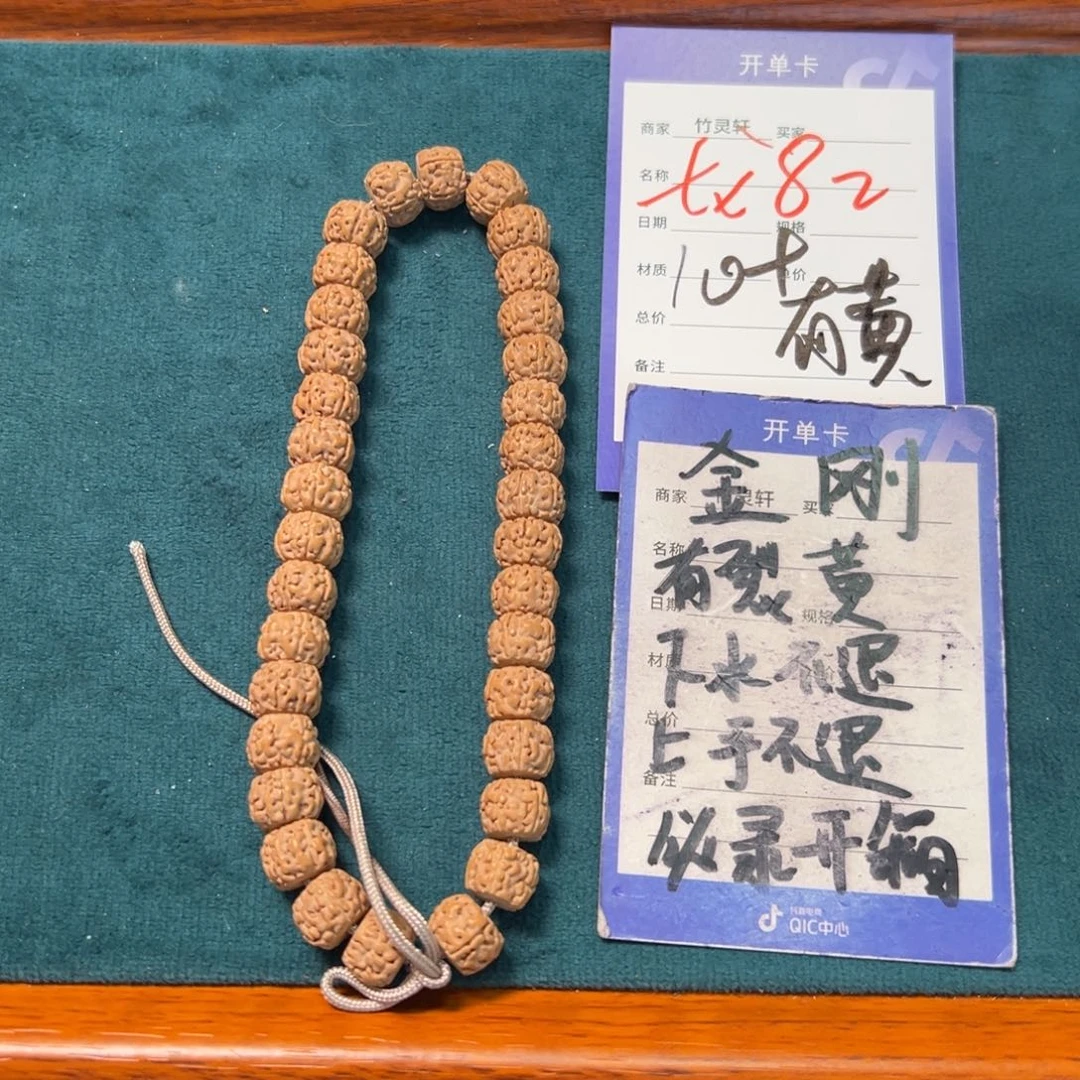 开单卡
商家 竹灵轩 买家
名称 tx82
日期 规格
材质 10+ 单价
有黄
总价
备注
开单卡
金刚
商家 竹灵轩 买家
名称
有裂黄
日期 规格
下水不退
材质
总价
上手不退
备注
必录开箱
抖音电商
QIC中心